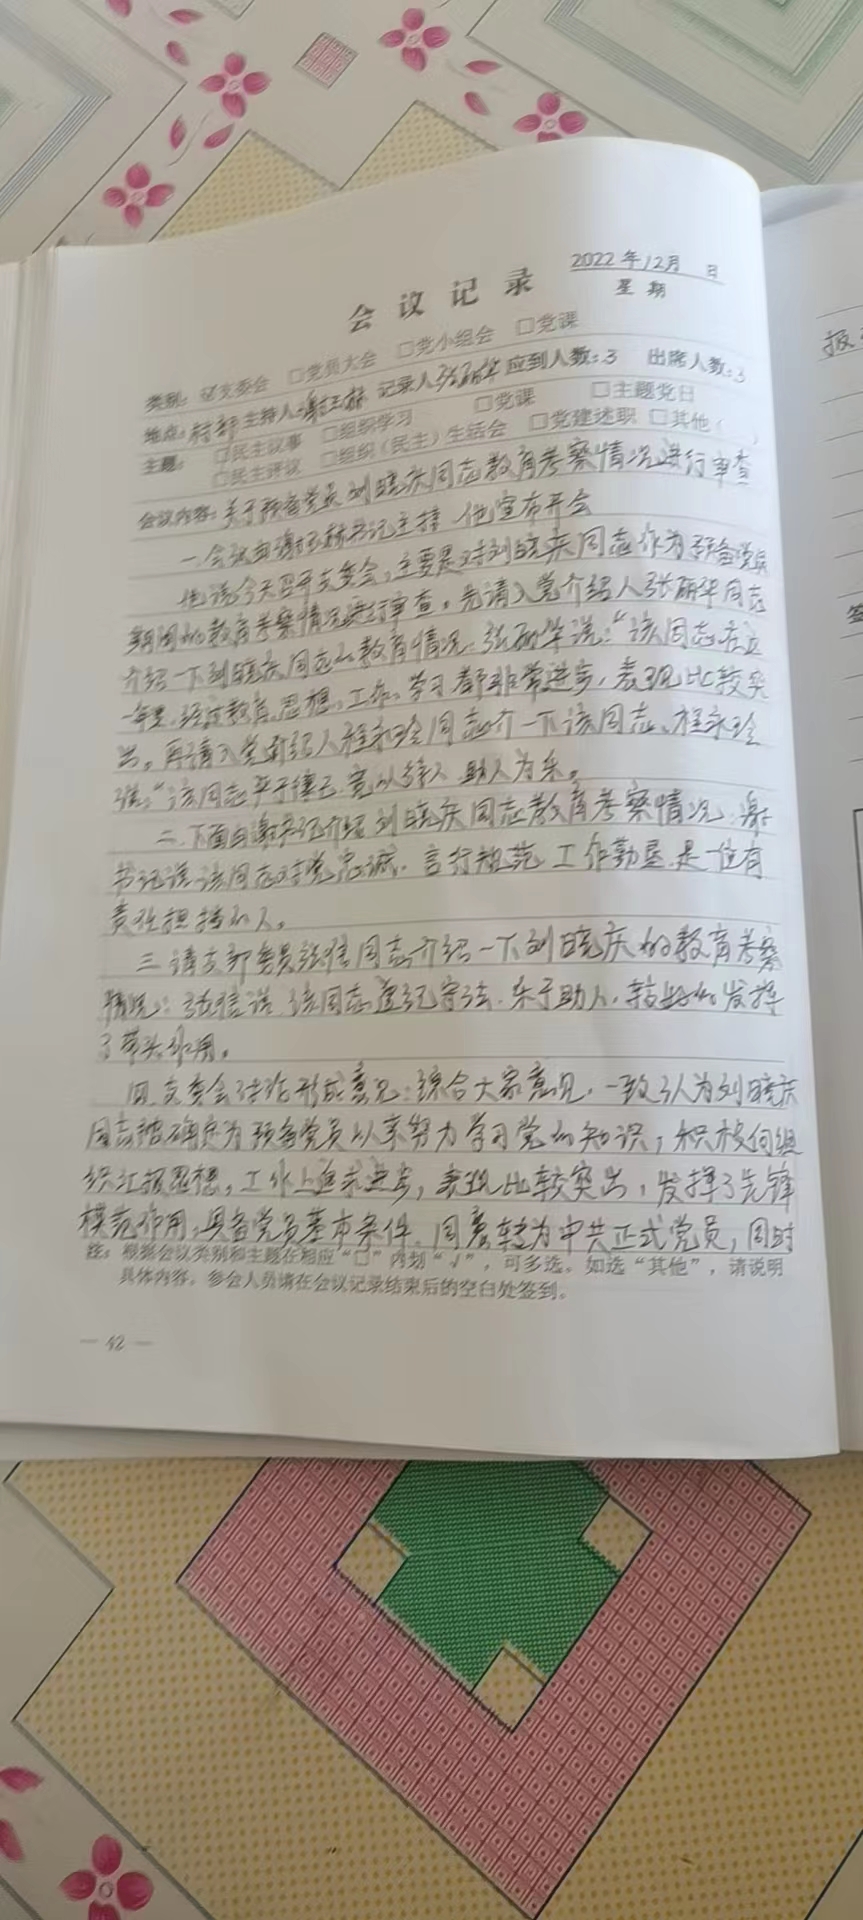 2022年12月 日
会议记录 星期
类别：☑支委会 □党员大会 □党小组会 □党课
地点：村部 主持人：谢 记录人张丽华 应到人数：3 出席人数：3
主题： □民主议事 □组织学习 □党课 □主题党日
□民主评议 □组织（民主）生活会 □党建述职 □其他（ ）
会议内容：关于预备党员刘晓庆同志教育考察情况进行审查
一.会议由谢 书记主持 他宣布开会
他说今天召开支委会，主要是对刘晓庆同志作为预备党员
期间的教育考察情况进行审查，先请入党介绍人张丽华同志
介绍一下刘晓庆同志的教育情况. 张丽华说：“该同志在这
一年里.经过教育.思想、工作、学习都非常进步，表现比较突
出。再请入党介绍人程永玲同志介一下该同志、程永玲
说：“该同志严于律己 宽以待人 助人为乐。
二.下面由谢书记介绍刘晓庆同志教育考察情况.谢
书记说该同志对党忠诚.言行规范 工作勤恳 是一位有
责任担 的人。
三.请支部委员张 同志介绍一下刘晓庆的教育考察
情况：张 说 该同志遵纪守法.乐于助人，较好的发挥
了带头作用。
四.支委会讨论形成意见：综合大家意见，一致认为刘晓庆
同志被确定为预备党员以来努力学习党的知识，积极向组
织汇报思想，工作上追求进步，表现比较突出，发挥了先锋
模范作用，具备党员基本条件.同意转为中共正式党员，同时
注：根据会议类别和主题在相应“□”内划“√”，可多选。如选“其他”，请说明
具体内容。参会人员请在会议记录结束后的空白处签到。
— 42 —
报
签